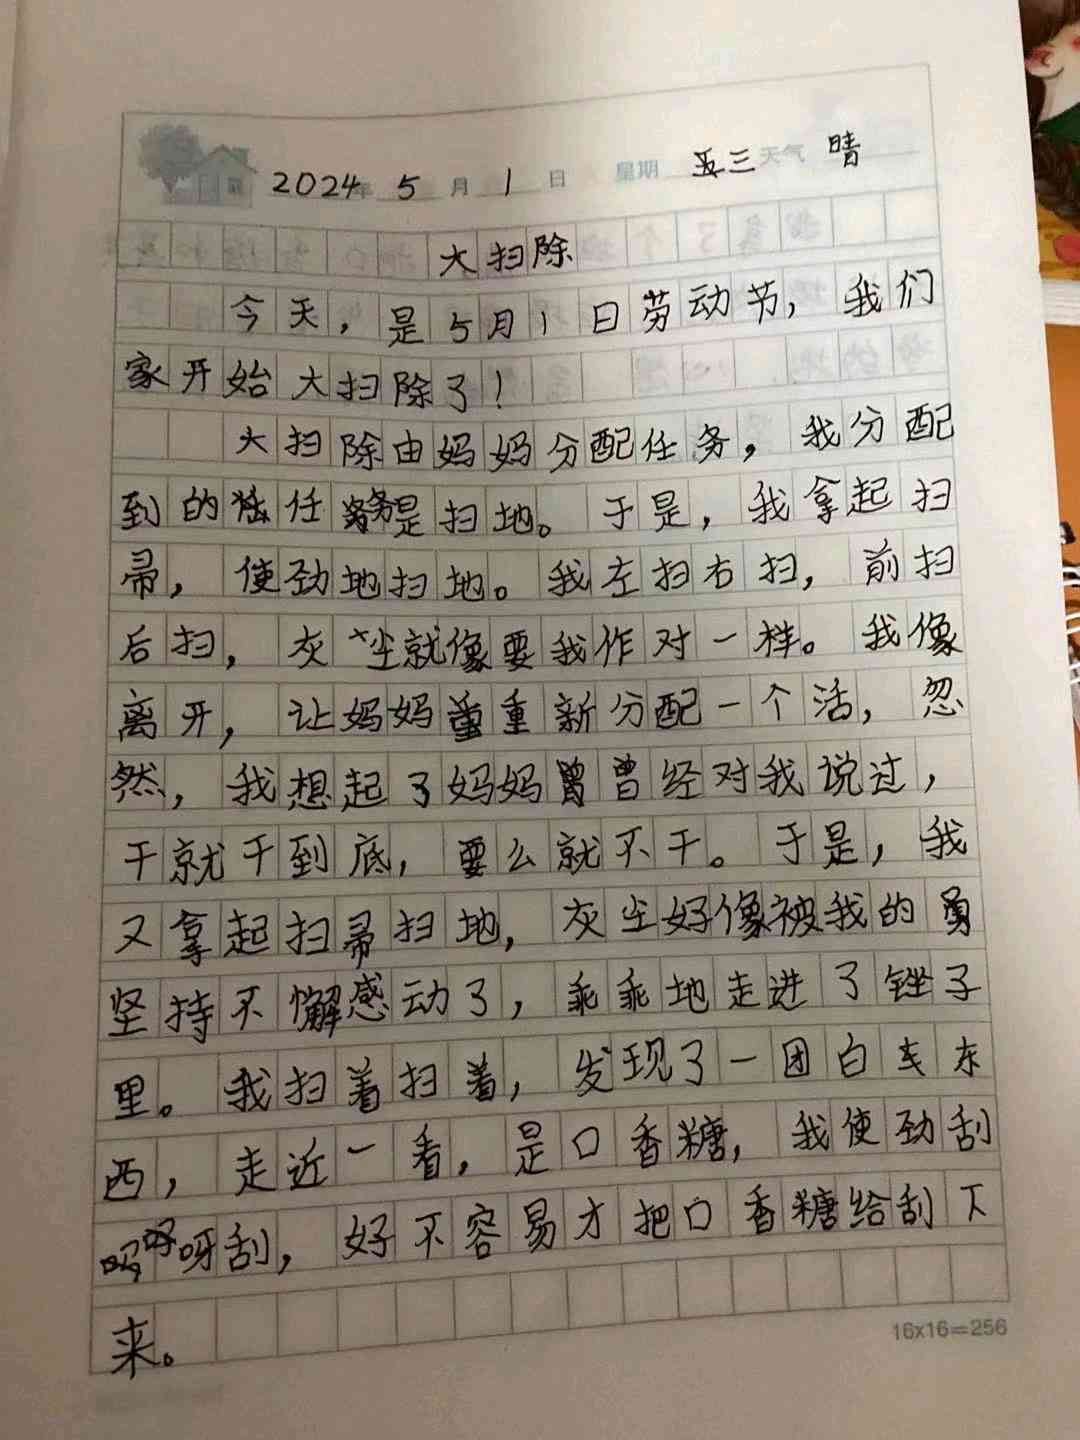 2024年5月1日 星期三 天气 晴
大扫除
今天，是5月1日劳动节，我们
家开始大扫除了！
大扫除由妈妈分配任务，我分配
到的任务是扫地。于是，我拿起扫
帚，使劲地扫地。我左扫右扫，前扫
后扫，灰尘就像要我作对一样。我像
离开，让妈妈重新分配一个活，忽
然，我想起了妈妈曾经对我说过，
干就干到底，要么就不干。于是，我
又拿起扫帚扫地，灰尘好像被我的
坚持不懈感动了，乖乖地走进了锉子
里。我扫着扫着，发现了一团白东
西，走近一看，是口香糖，我使劲刮
呀刮，好不容易才把口香糖给刮下
来。
16x16=256